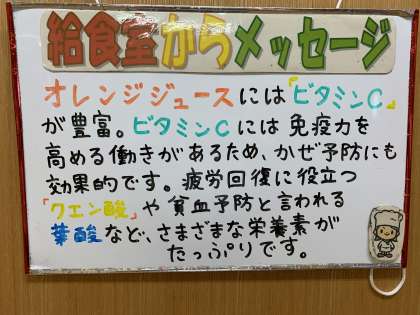 給食室からメッセージ
オレンジジュースには「ビタミンC」
が豊富。ビタミンCには免疫力を
高める働きがあるため、かぜ予防にも
効果的です。疲労回復に役立つ
「クエン酸」や貧血予防と言われる
葉酸など、さまざまな栄養素が
たっぷりです。